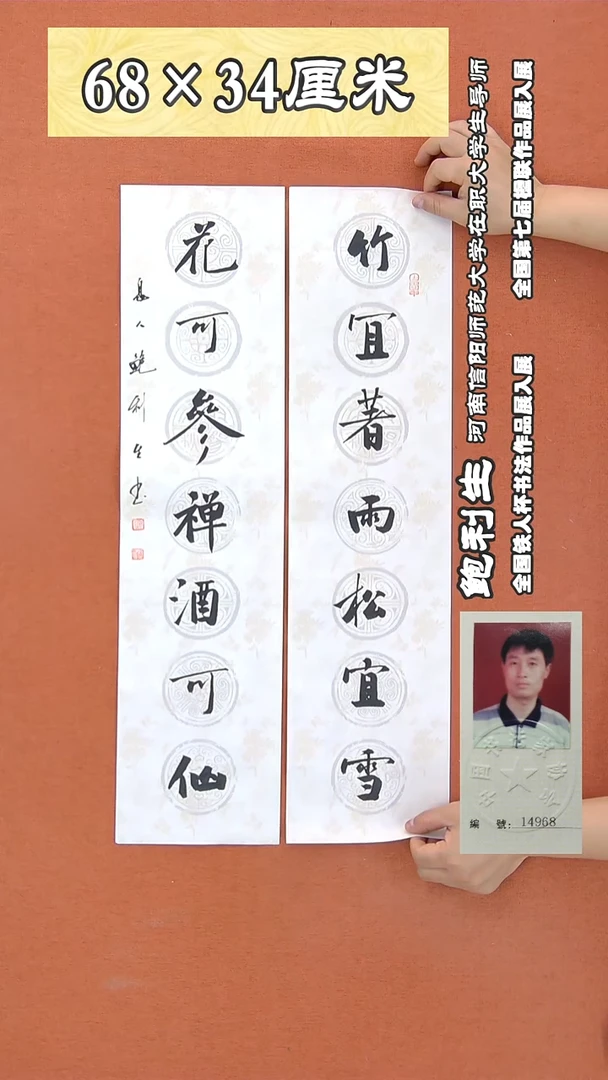 68×34厘米
竹宜著雨松宜雪
花可參禅酒可仙
息人鲍利生书
鲍利生 河南信阳师范大学在职大学生导师
全国铁人杯书法作品展入展 全国第七届楹联作品展入展
編 號：14968